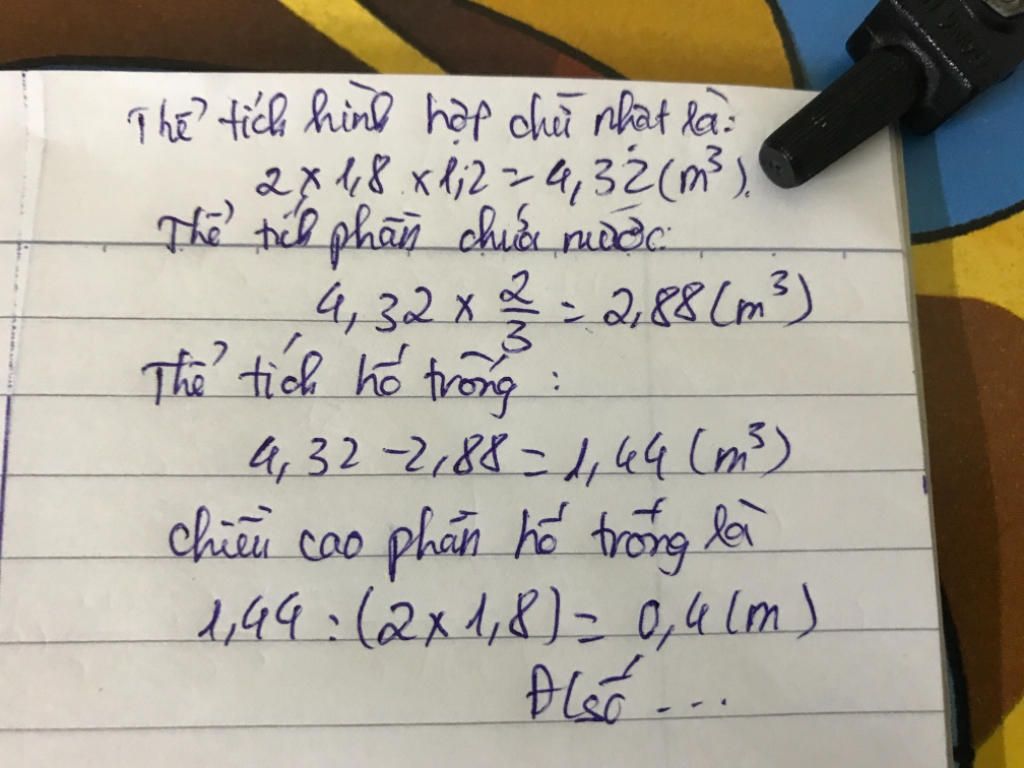 Thể tích hình hộp chữ nhật là:
2 x 1,8 x 1,2 = 4,32 (m³).
Thể tích phần chứa nước:
4,32 x 2/3 = 2,88 (m³)
Thể tích hố trống :
4,32 - 2,88 = 1,44 (m³)
chiều cao phần hố trống là
1,44 : (2 x 1,8) = 0,4 (m)
Đ(số ...